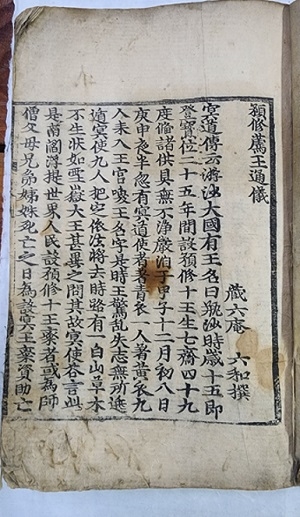 預修薦王通儀
藏六庵　六和撰
冥道傳云游沙大國有王名曰瓶沙時歲十五即
登寶位二十五年間設預修十王生七齋四十九
度備諸供具無不淨嚴洎于甲子十二月初八日
庚申夜半忽有冥道使者着青衣一人著黃衣九
人來入王宮喚王名字其時王驚亂失志無所逃
遁冥使九人把定依法將去時路有一白山草木
不生狀如雪嶽大王甚異之問其故冥使答言此
是南閻浮提世界人民設預修十王齋者或爲師
僧父母兄弟姊妹死亡之日為設冥王齋資助亡